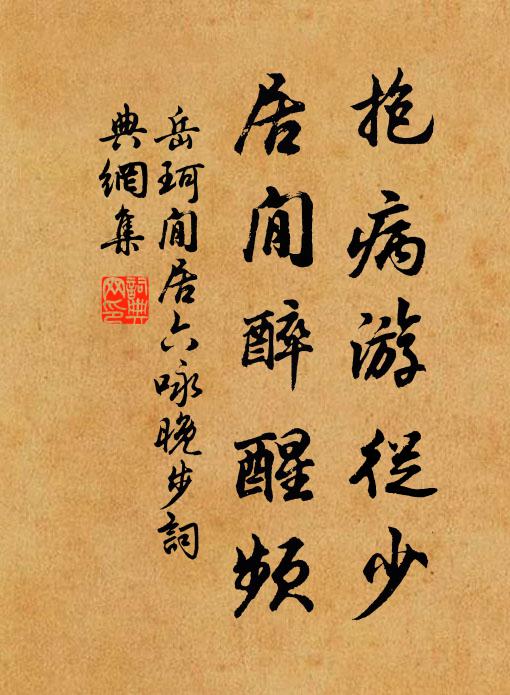 抱病游從少
居閒醉醒頻
岳珂閒居六咏晚步詞
典網集
詞典
网印